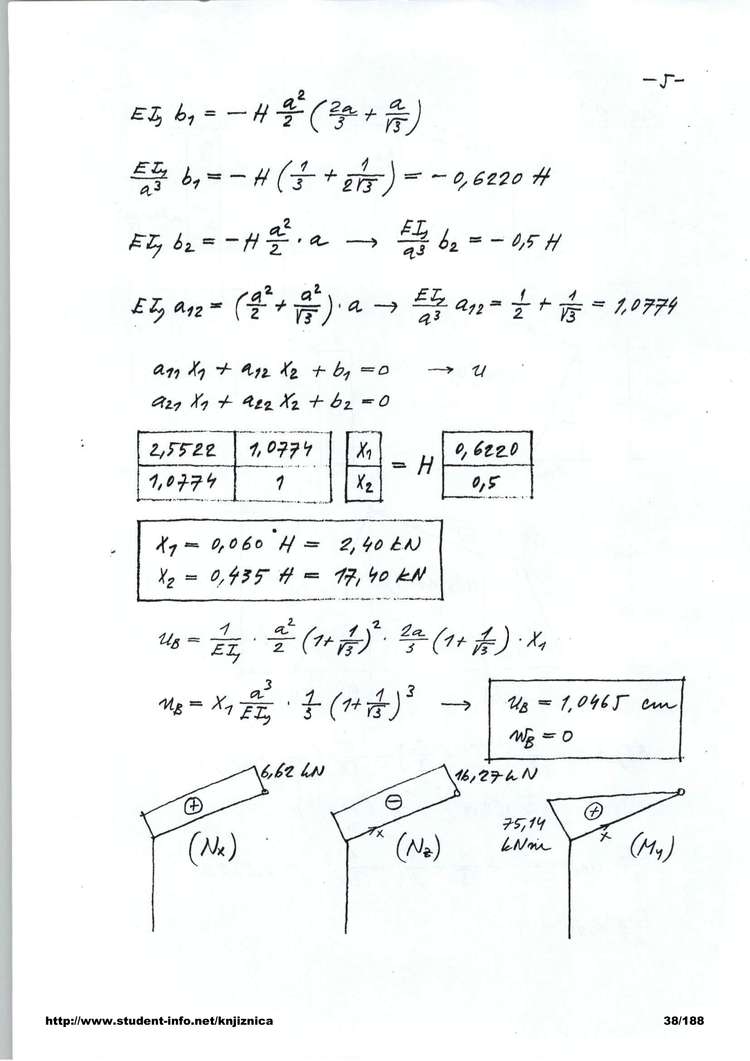 -5-
EIy b1 = - H a²/2 (2a/3 + a/√3)
EIy/a³ b1 = - H (1/3 + 1/2√3) = - 0,6220 H
EIy b2 = - H a²/2 · a → EIy/a³ b2 = - 0,5 H
EIy a12 = (a²/2 + a²/√3) · a → EIy/a³ a12 = 1/2 + 1/√3 = 1,0774
a11 X1 + a12 X2 + b1 = 0 → u
a21 X1 + a22 X2 + b2 = 0
2,5522 1,0774 X1 = H 0,6220
1,0774 1 X2 0,5
X1 = 0,060 H = 2,40 kN
X2 = 0,435 H = 17,40 kN
uB = 1/EIy · a²/2 (1+1/√3)² · 2a/3 (1+1/√3) · X1
uB = X1 a³/EIy · 1/3 (1+1/√3)³ → uB = 1,0465 cm
wB = 0
6,62 kN 16,27 kN
+ - +
75,14 kNm
x x
(Nx) (Nz) (My)
http://www.student-info.net/knjiznica 38/188